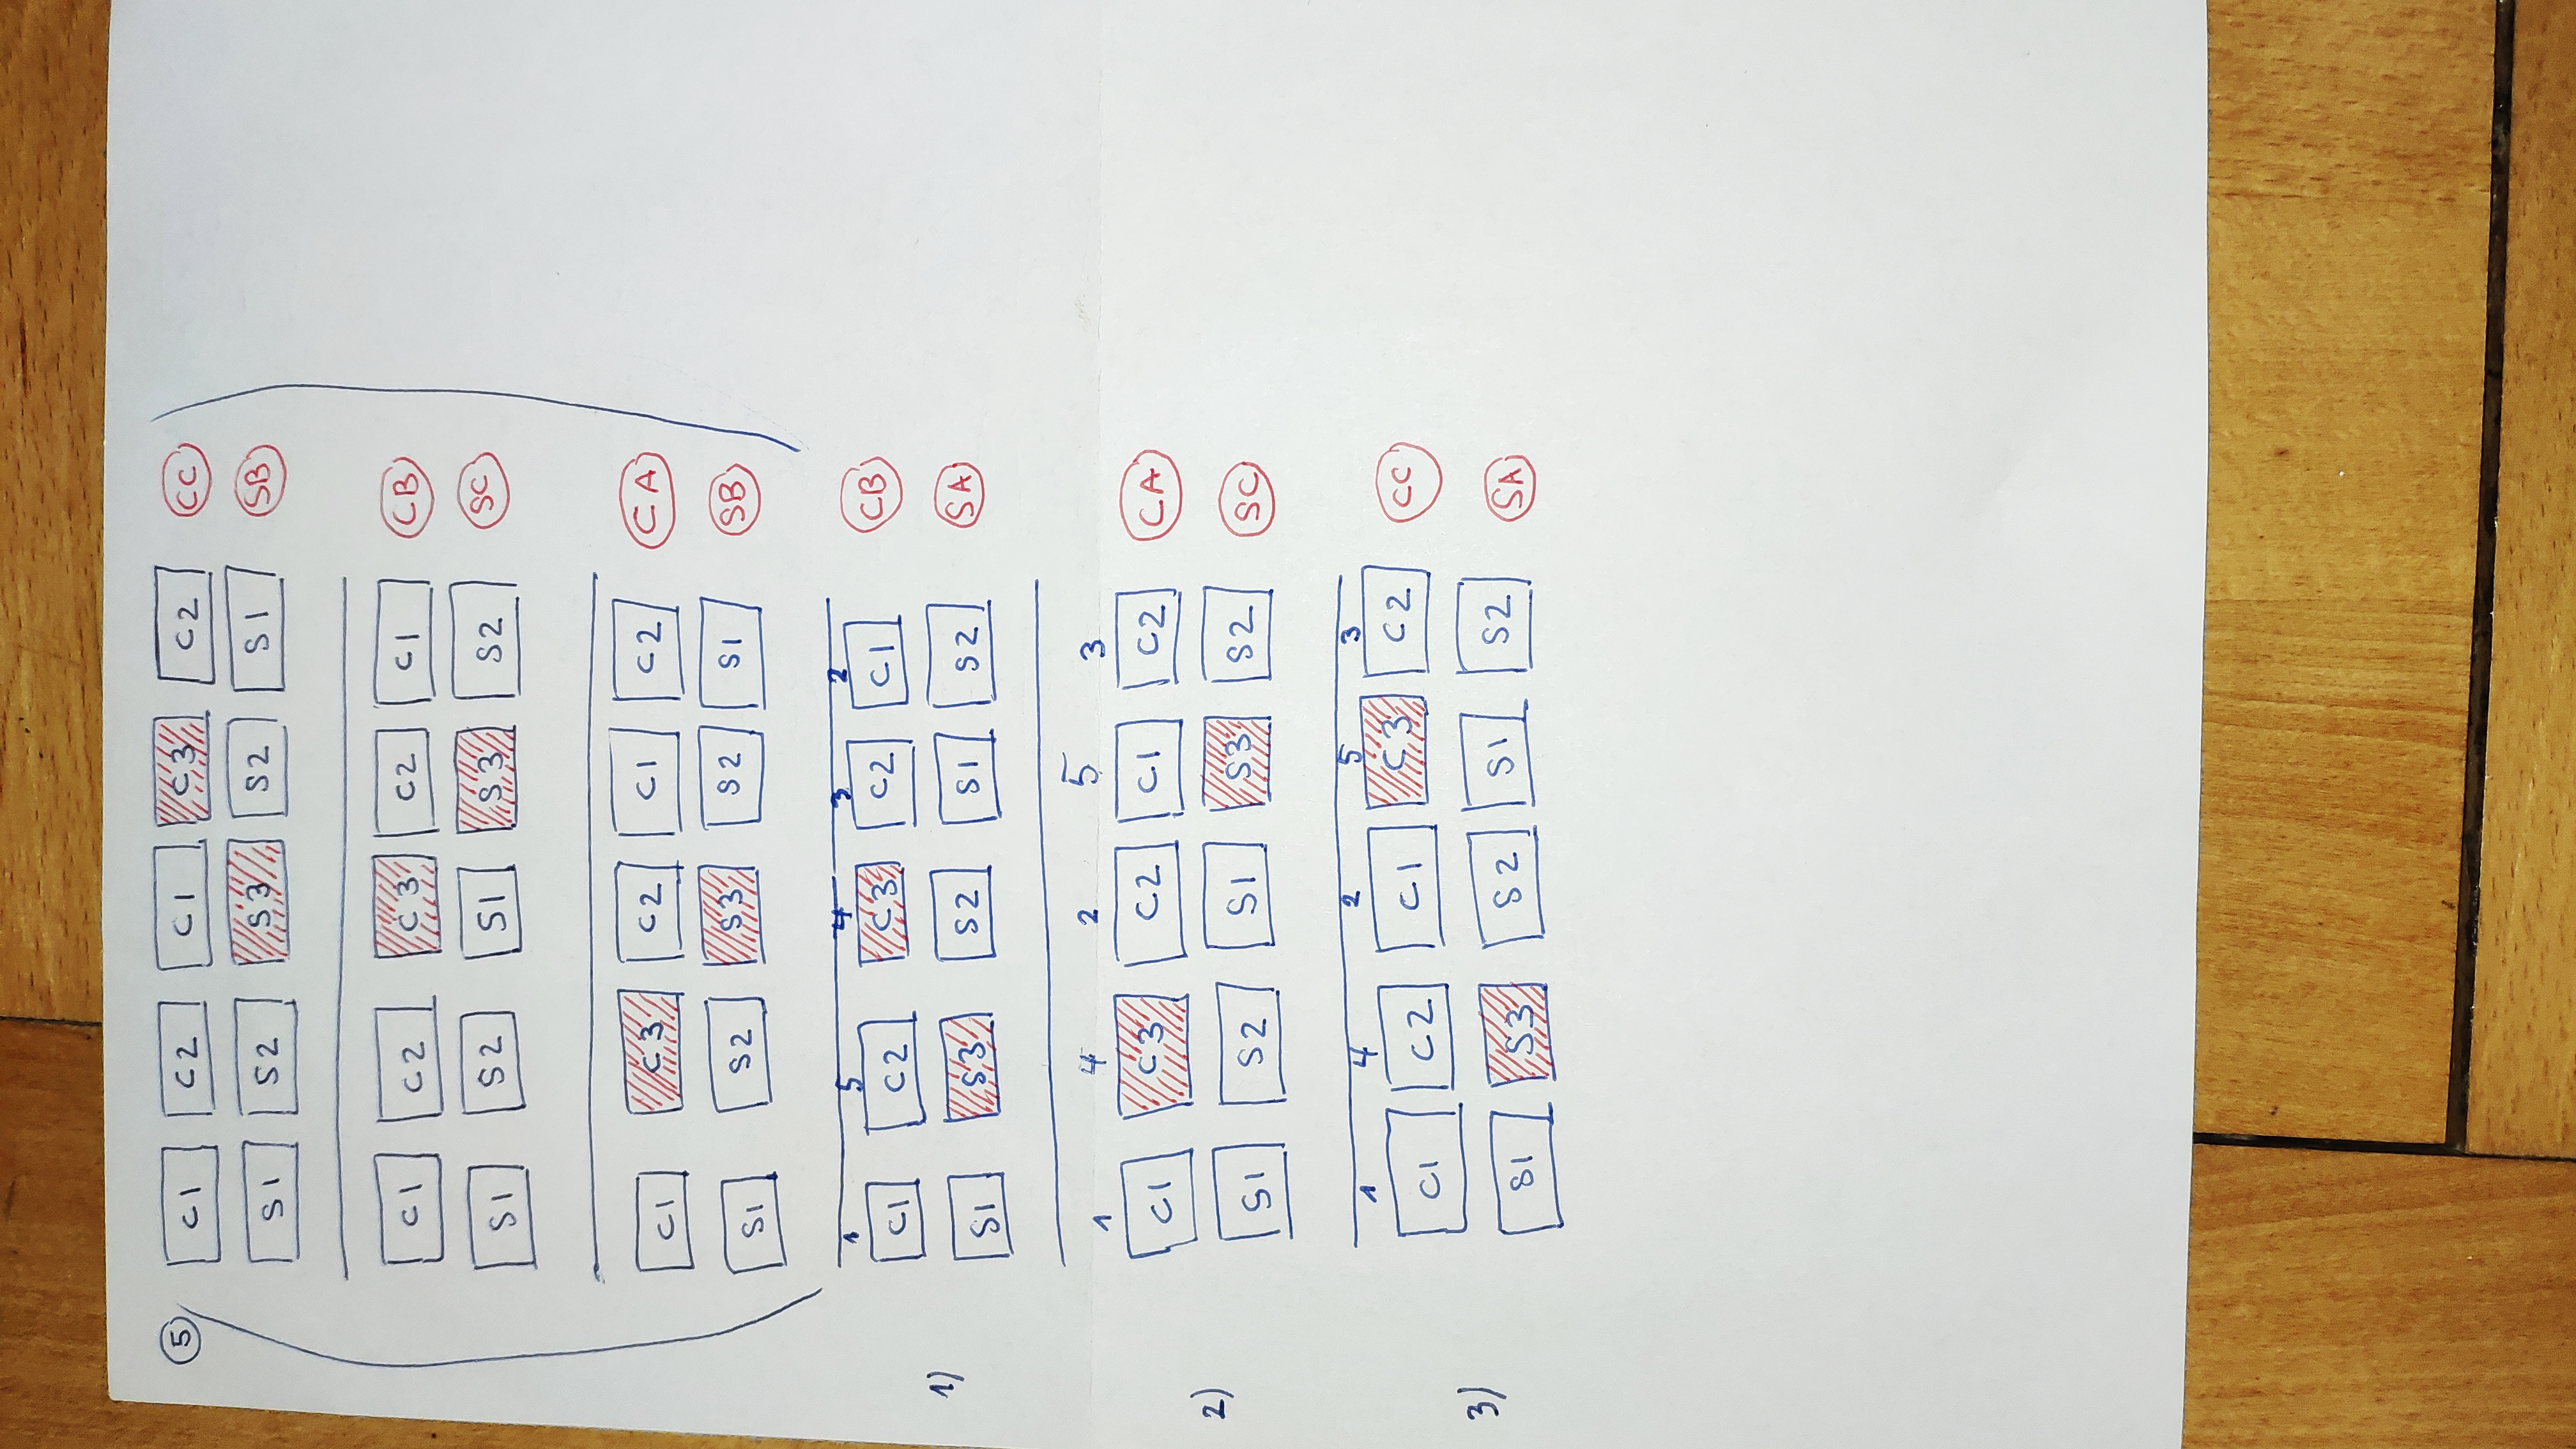 ⑤ C1 C2 C1 C3 C2 CC
S1 S2 S3 S2 S1 SB
C1 C2 C3 C2 C1 CB
S1 S2 S1 S3 S2 SC
C1 C3 C2 C1 C2 CA
S1 S2 S3 S2 S1 SB
1 5 4 3 2
C1 C2 C3 C2 C1 CB
1)
S1 S3 S2 S1 S2 SA
1 4 2 5 3
C1 C3 C2 C1 C2 CA
2)
S1 S2 S1 S3 S2 SC
1 4 2 5 3
C1 C2 C1 C3 C2 CC
3)
S1 S3 S2 S1 S2 SA